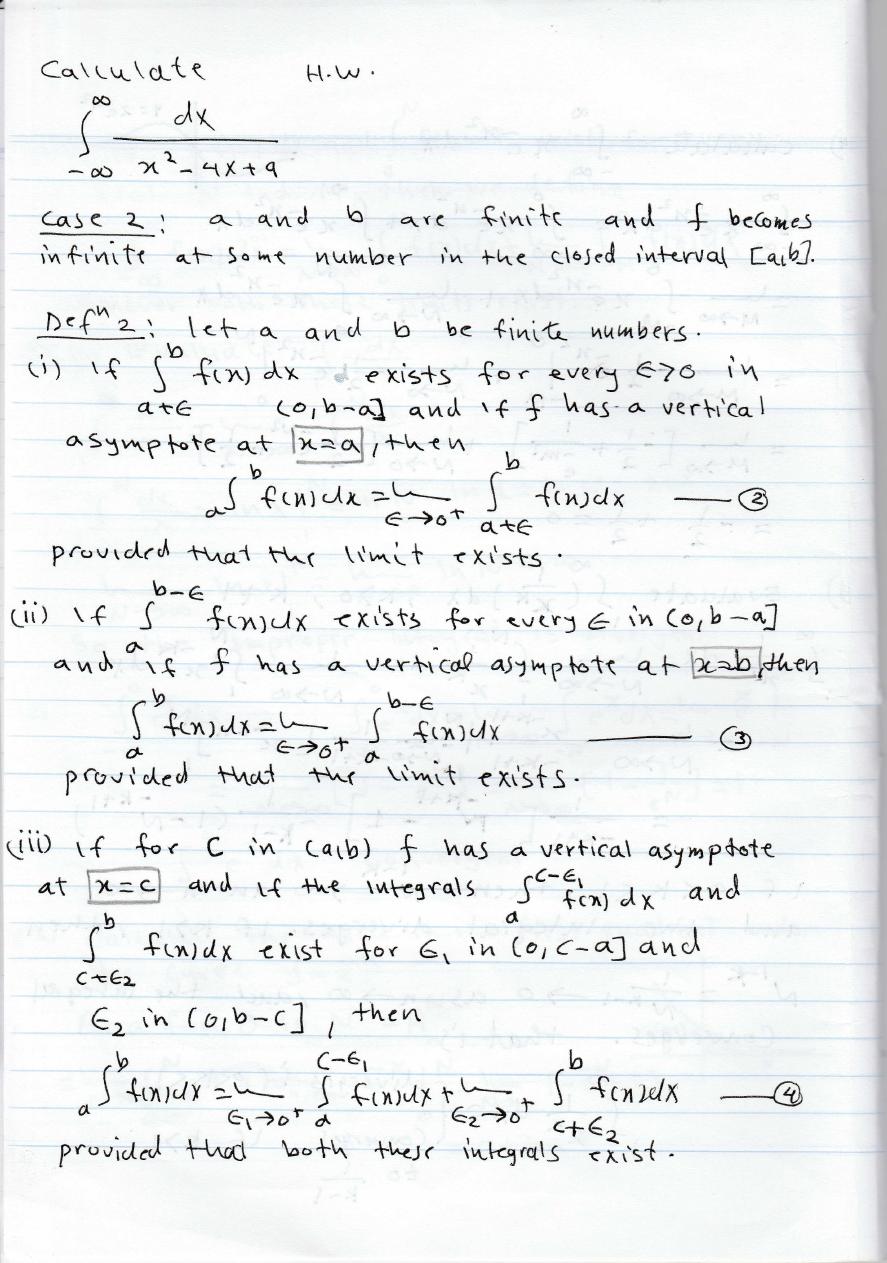 Calculate H.W.
∫_{-∞}^{∞} dx / (x² - 4x + 9)
Case 2: a and b are finite and f becomes
infinite at some number in the closed interval [a,b].
Defⁿ 2: let a and b be finite numbers.
(i) If ∫_{a+ϵ}^{b} f(x) dx exists for every ϵ>0 in
(0,b-a] and if f has a vertical
asymptote at x=a, then
∫_{a}^{b} f(x)dx = lim_{ϵ→0⁺} ∫_{a+ϵ}^{b} f(x)dx — ②
provided that the limit exists.
(ii) If ∫_{a}^{b-ϵ} f(x)dx exists for every ϵ in (0,b-a]
and if f has a vertical asymptote at x=b, then
∫_{a}^{b} f(x)dx = lim_{ϵ→0⁺} ∫_{a}^{b-ϵ} f(x)dx — ③
provided that the limit exists.
(iii) If for C in (a,b) f has a vertical asymptote
at x=c and if the integrals ∫_{a}^{c-ϵ₁} f(x) dx and
∫_{c+ϵ₂}^{b} f(x)dx exist for ϵ₁ in (0,c-a] and
ϵ₂ in (0,b-c], then
∫_{a}^{b} f(x)dx = lim_{ϵ₁→0⁺} ∫_{a}^{c-ϵ₁} f(x)dx + lim_{ϵ₂→0⁺} ∫_{c+ϵ₂}^{b} f(x)dx — ④
provided that both these integrals exist.